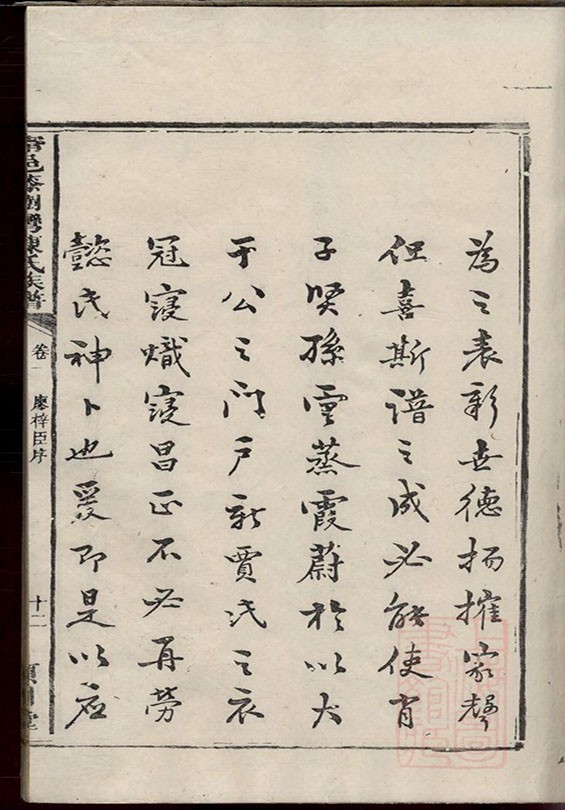 為之表彰世德揚搉家聲
但喜斯譜之成必能使肖
子賢孫雲蒸霞蔚於以大
于公之門戶新賈氏之衣
冠寖熾寖昌正不必再勞
懿氏神卜也爰即是以應
陳氏族譜
卷一
廖梓臣序
十二